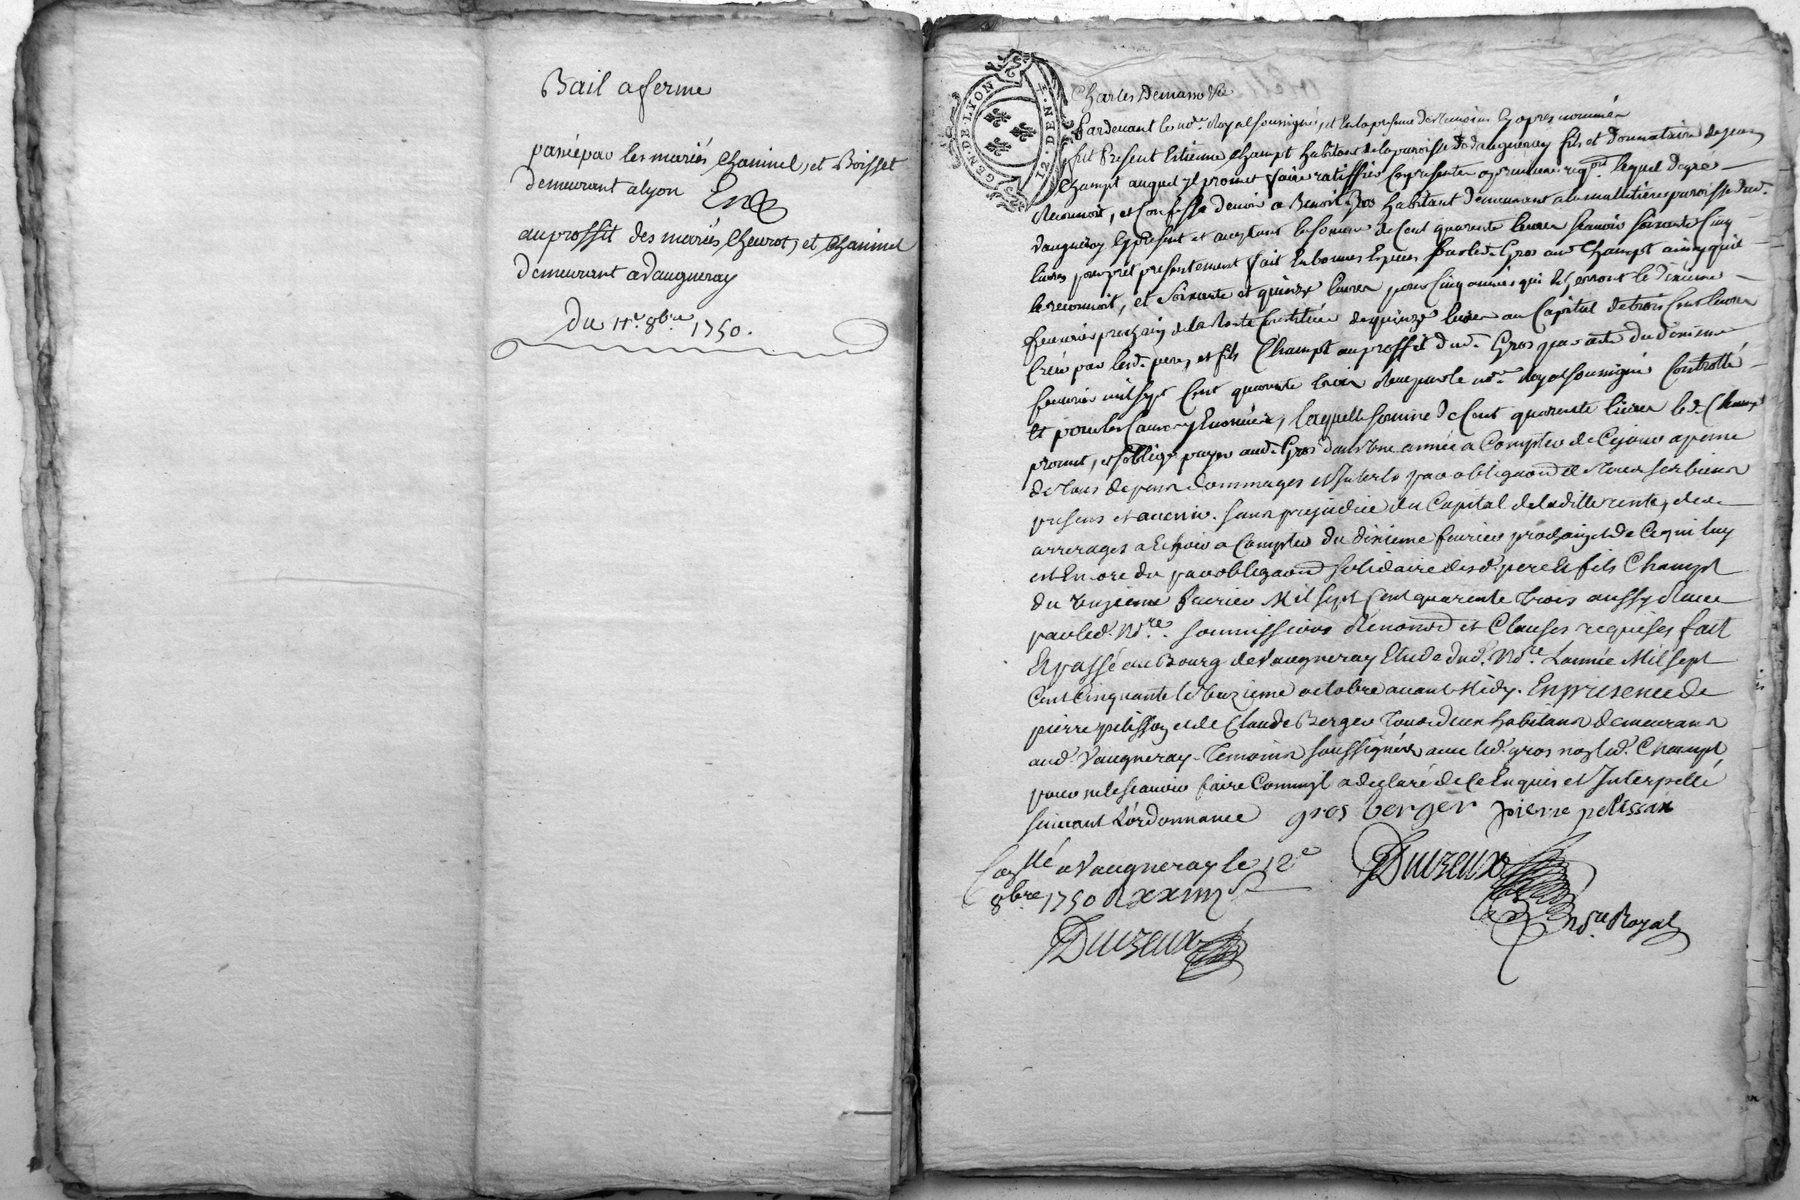 Bail a ferme
passé par les mariés Chaninel, et Boisset
demeurant a lyon
au proffit des mariés Cheurot, et Chaninel
demeurant a Vaugneray
Du 11e. 8bre 1750.
GEN. DE LYON
12. DEN.
Pardevant le nore. Royal soussigné, et en la presence des temoins cy apres nommés
fut Present Estienne Champt habitant de la paroisse de Vaugneray fils et donnataire de jean
Champt auquel il promet faire ratiffier ces presentes a premiere reqon. lequel de gré
Reconnoit, et Confesse devoir a Benoit Gros habitant demeurant a la paroisse dud.
Vaugneray cy present et acceptant la somme de Cent quarente livres scavoir soixante Cinq
livres pour prêt presentement fait en bonnes Especes par led. Gros aud. Champt ainsy qu'il
le reconnoit, et soixante et quinze livres pour Cinq années qui echerront le dixieme
fevrier prochain de la Rente Constituée de quinze livres au Capital de trois Cent livres
Créé par lesd. pere, et fils Champt au proffit dud. Gros par acte du dixieme
fevrier mil sept Cent quarente trois Receu par le nore. Royal soussigné Controllé
Et pour les Causes Enoncées, laquelle somme de Cent quarente livres led. Champt
promet, et s'oblige payer aud. Gros dans une année a Compter de Ce jour a peine
de tous depens dommages et Interets par obligaon de tous ses biens
presens et avenir. sans prejudice du Capital de laditte rente, des
arrerages a Echoir a Compter du dixieme fevrier prochain et de Ce qui luy
est Encore du par obligaon solidaire desd. pere et fils Champt
du unzieme fevrier Mil sept Cent quarente trois aussy Receue
par led. Nore. soumissions Renonson et Clauses requises fait
et passé au Bourg de Vaugneray Etude dud. Nore. L'année Mil sept
Cent Cinquante le unzieme octobre avant Midy. En presence de
pierre pelisson et de Claude Berger habitans demeurans
aud. Vaugneray Temoins soussignés avec led. gros non led. Champt
pour ne le scavoir faire Comm'il a declaré de Ce Enquis et Interpellé
suivant L'ordonnance gros berger pierre pelissan
Conllé a Vaugneray le 12e
8bre 1750
Duizeux
nore Royal
Duizeux